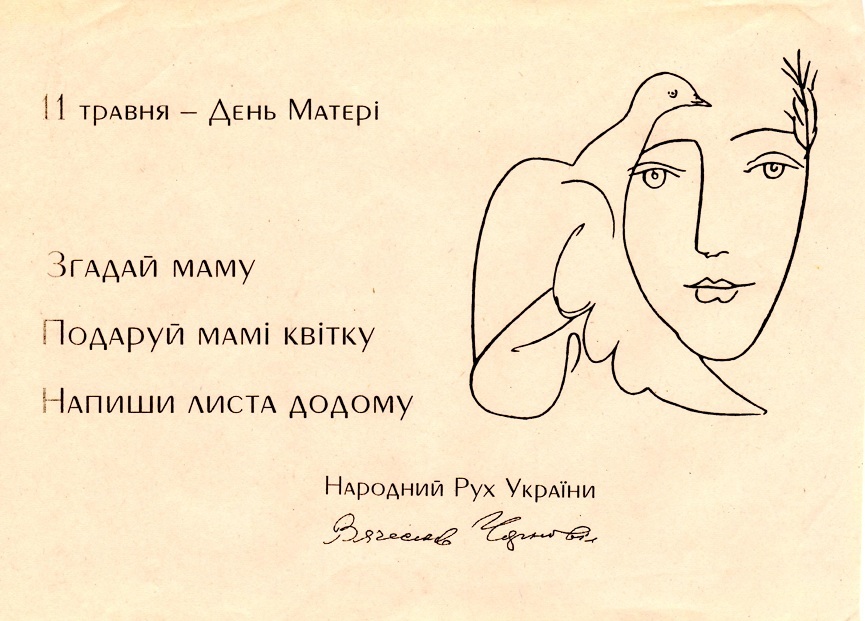 11 травня – День Матері
Згадай маму
Подаруй мамі квітку
Напиши листа додому
Народний Рух України
Вячеслав Чорновіл